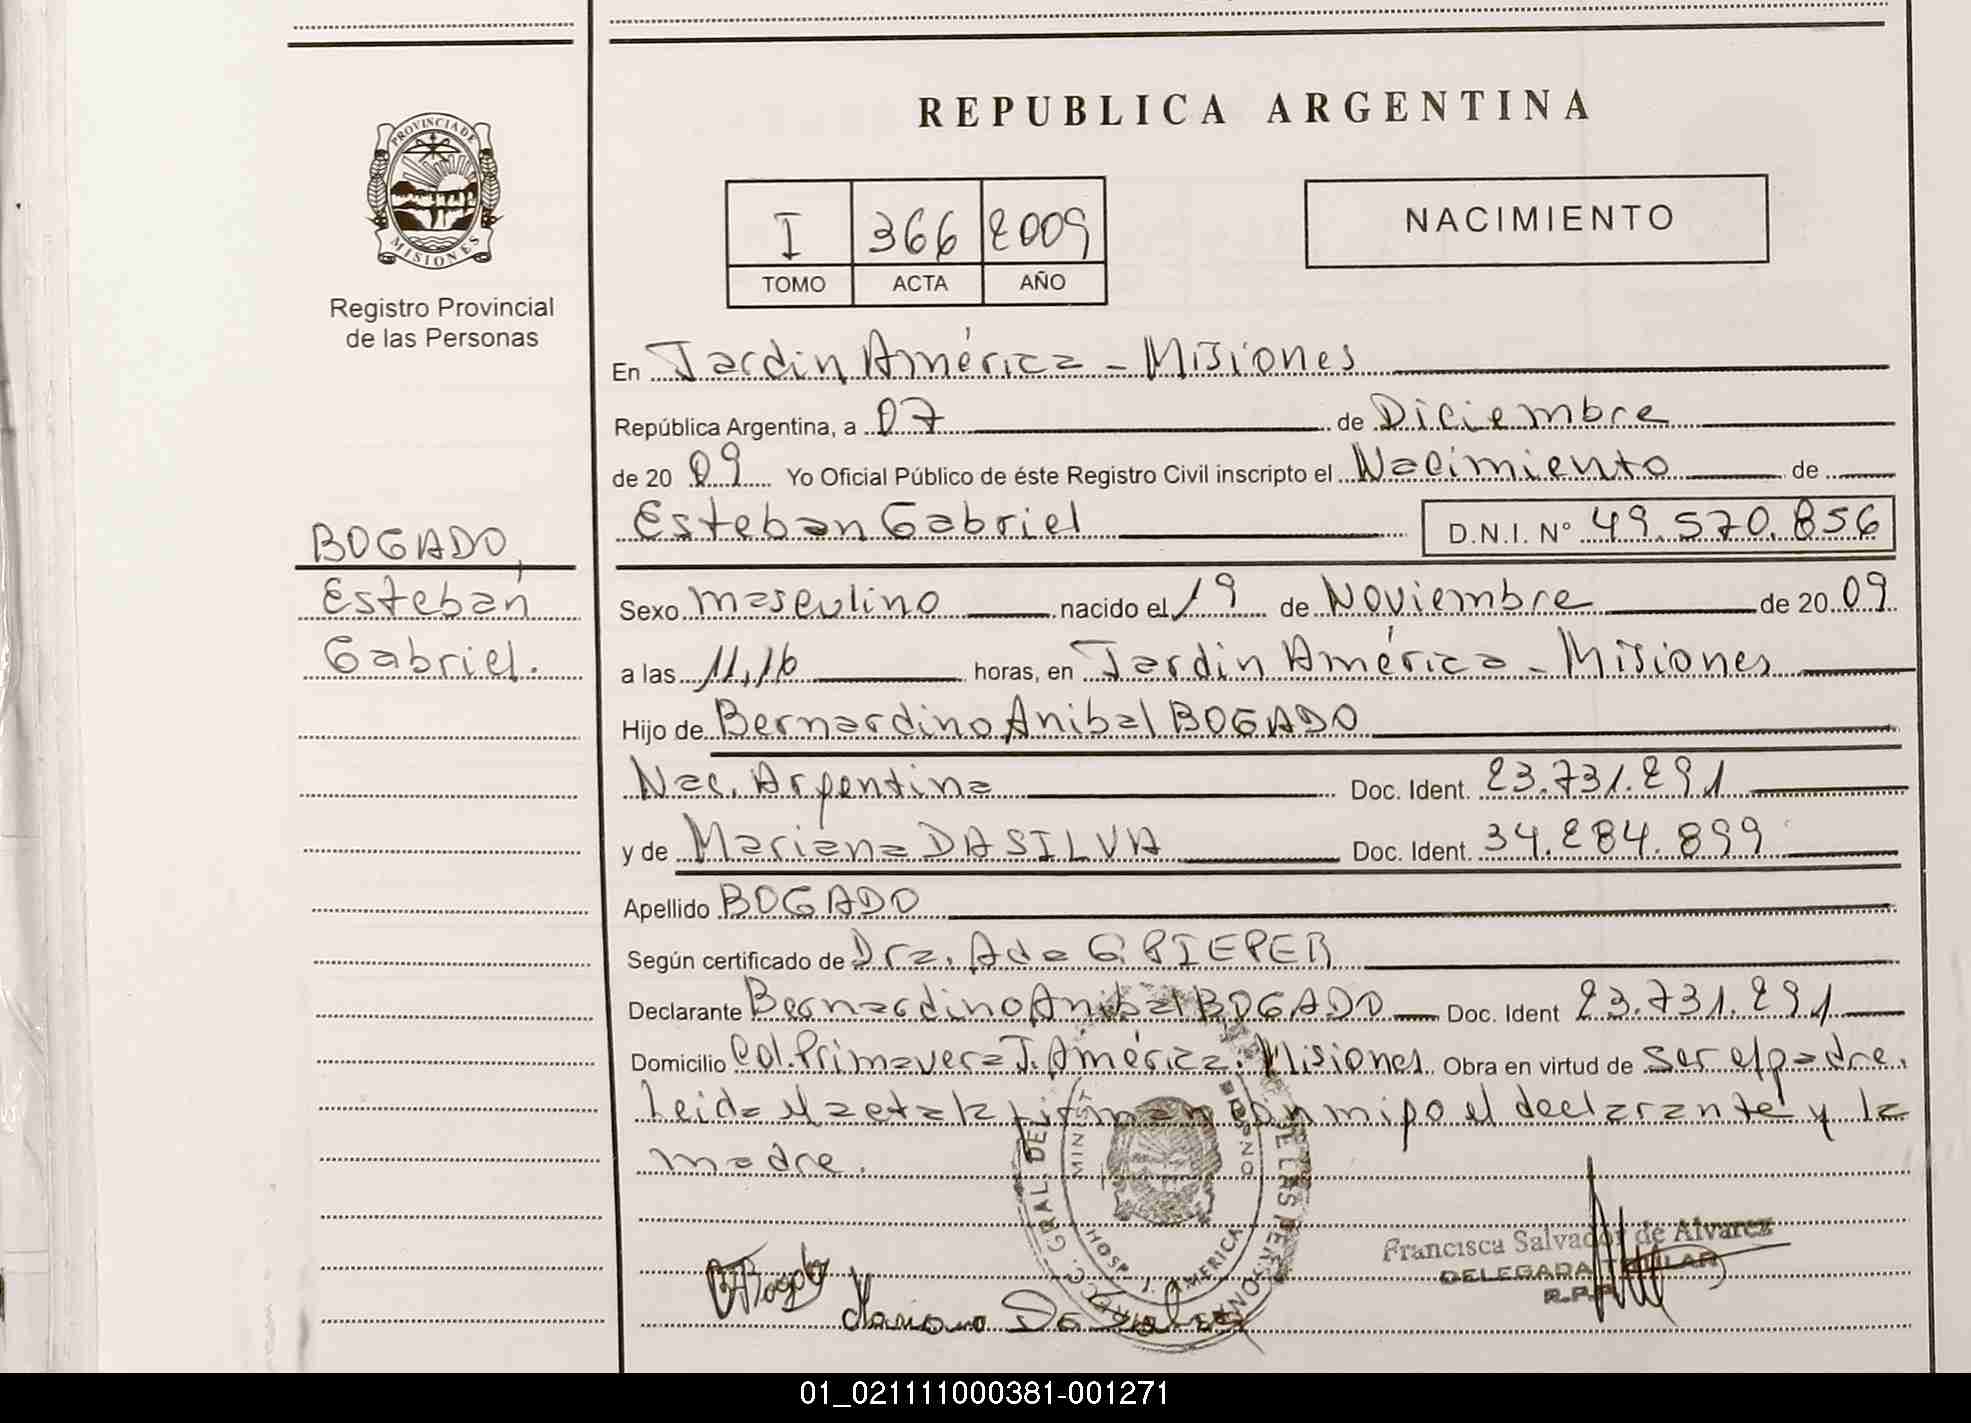 REPUBLICA ARGENTINA
PROVINCIA DE
MISIONES
Registro Provincial
de las Personas
I 366 2009
TOMO ACTA AÑO
NACIMIENTO
En Jardin América - Misiones
República Argentina, a 07 de Diciembre
de 20 09 Yo Oficial Público de éste Registro Civil inscripto el Nacimiento de
Esteban Gabriel D.N.I. Nº 49.570.856
BOGADO,
Esteban
Gabriel.
Sexo masculino nacido el 19 de Noviembre de 20 09
a las 11,16 horas, en Jardin América - Misiones
Hijo de Bernardino Anibal BOGADO
Nac. Argentina Doc. Ident. 23.731.291
y de Mariana DA SILVA Doc. Ident. 34.284.899
Apellido BOGADO
Según certificado de Dra. Ada G. PIEPER
Declarante Bernardino Anibal BOGADO Doc. Ident 23.731.291
Domicilio Col. Primavera J. América. Misiones Obra en virtud de ser el padre.
Leida el acta la firman conmigo el declarante y la
madre.
GRAL. DEL
DE LAS PERSONAS
MINIST
HOSP. J. AMERICA
Francisca Salvador de Alvarez
DELEGADA TITULAR
R.P.P.
Bogado
Mariana Da Silva
01_021111000381-001271